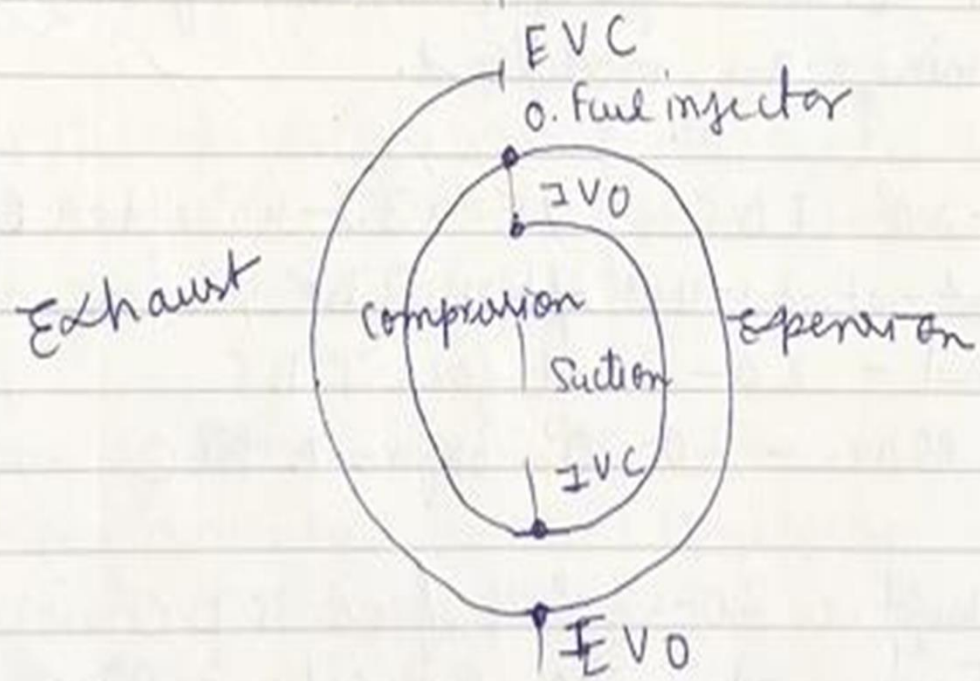 EVC
o. Fuel injector
IVO
Exhaust
Compression
Expension
Suction
IVC
EVO